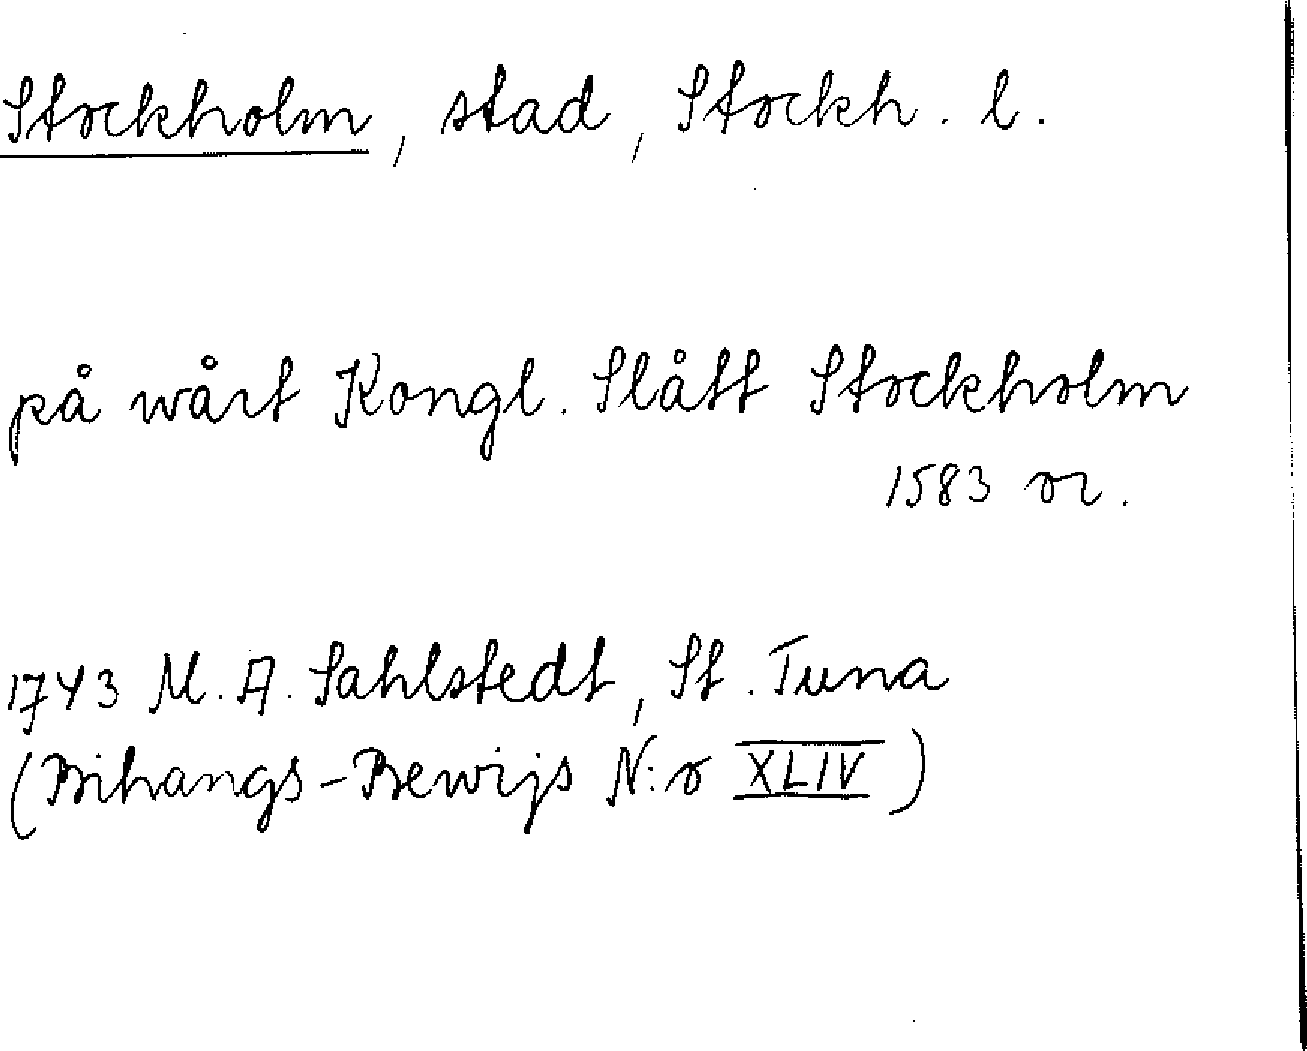 Stockholm, stad, Stockh. l.
på wårt Kongl. Slått Stockholm
1583 or.
1743 M. A. Sahlstedt, St. Tuna
(Bihangs-Bewijs N:o XLIV)